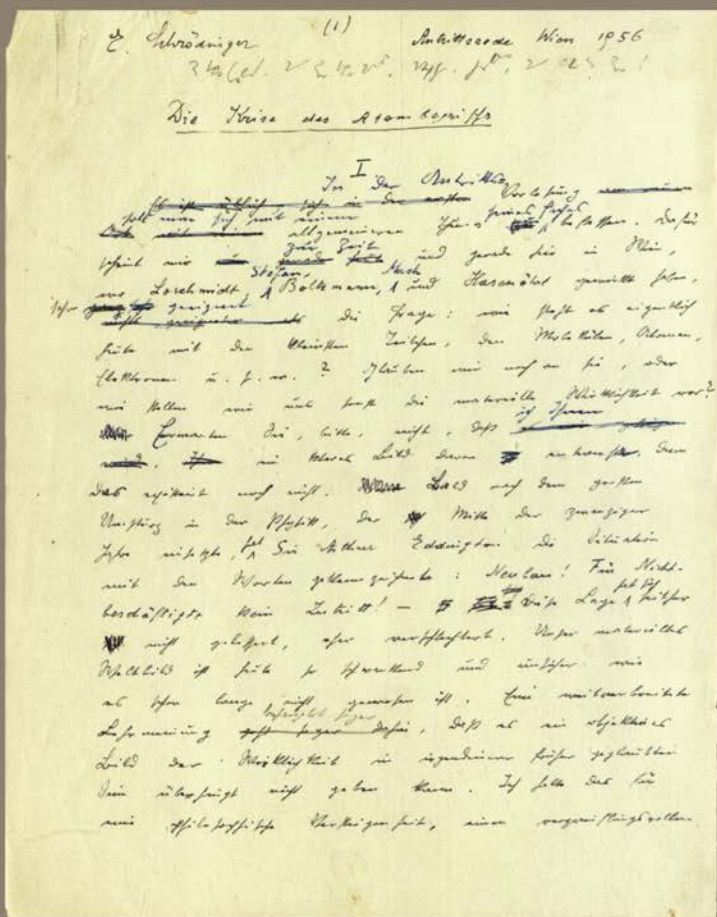 E. Schrödinger (1) Antrittsrede Wien 1956
Die Krise des Atombegriffs
I
In der Antritts-Vorlesung
soll man sich mit einem allgemeinen Thema seines Faches befassen. Dafür
scheint mir zur Zeit und gerade hier in Wien,
wo Loschmidt, Stefan, Boltzmann, Mach und Hasenöhrl gewirkt haben,
sehr geeignet die Frage: wie steht es eigentlich
heute mit den kleinsten Teilchen, den Molekülen, Atomen,
Elektronen u. s. w. ? Glauben wir noch an sie, oder
wie stellen wir uns sonst die materielle Wirklichkeit vor?
Erwarten Sie, bitte, nicht, daß ich Ihnen
ein klares Bild davon entwerfe, denn
das existiert noch nicht. Bald nach dem großen
Umsturz in der Physik, der Mitte der zwanziger
Jahre einsetzte, hat Sir Arthur Eddington die Situation
mit den Worten gekennzeichnet: Neubau! Für Nicht-
beschäftigte kein Zutritt! — Diese Lage hat sich seither
nicht gebessert, eher verschlechtert. Unser materielles
Weltbild ist heute so schwankend und unsicher wie
es schon lange nicht gewesen ist. Eine weitverbreitete
Lehrmeinung behauptet sogar, daß es ein objektives
Bild der Wirklichkeit in irgendeinem früher geglaubten
Sinn überhaupt nicht geben kann. Ich halte das für
eine philosophische Verstiegenheit, einen verzweiflungsvollen